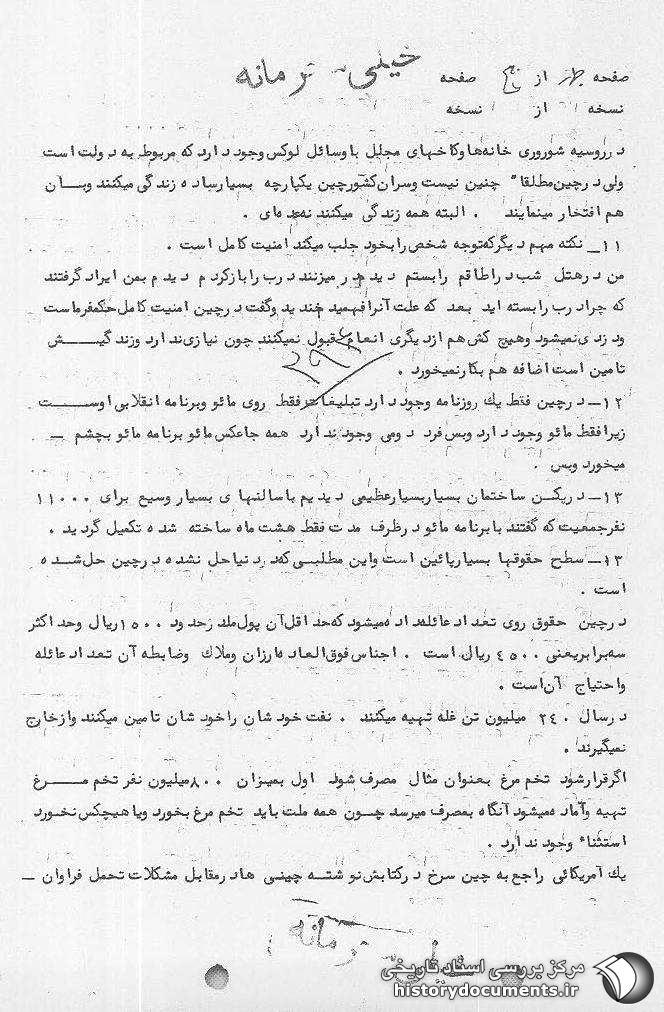 خیلی محرمانه
صفحه چهار از پنج صفحه
نسخه ۱ از ۱ نسخه
در روسیه شوروری خانه‌ها و کاخهای مجلل با وسائل لوکس وجود دارد که مربوط به دولت است
ولی در چین مطلقا" چنین نیست و سران کشور چین یکپارچه بسیار ساده زندگی میکنند و بـان
هم افتخار مینمایند . البته همه زندگی میکنند نه عده‌ای .
۱۱ـ نکته مهم دیگر که توجه شخص را بخود جلب میکند امنیت کامل است .
من در هتل شب در اطاقم را بستم دیدم در میزنند در ب را باز کردم دیدم بمن ایراد گرفتند
که چرا در ب را بسته اید بعد که علت آنرا فهمید خندید و گفت در چین امنیت کامل حکمفرماست
و دزدی نمیشود و هیچ کس هم از دیگری انعام قبول نمیکنند چون نیازی ندارد و زندگیـــش
تامین است اضافه هم بکار نمیخورد .
۱۲ـ در چین فقط یك روزنامه وجود دارد تبلیغات فقط روی مائو و برنامه انقلابی اوســت
زیرا فقط مائو وجود دارد و بس فرد دومی وجود ندارد همه جا عکس مائو برنامه مائو بچشم ـ
میخورد و بس .
۱۳ـ در پکـن ساختمان بسیار بسیار عظیمی دیدیم با سالنهای بسیار وسیع برای ۱۱۰۰۰
نفر جمعیت که گفتند با برنامه مائو در ظرف مدت فقط هشت ماه ساخته شده تکمیل گردید .
۱۳ـ سطح حقوقها بسیار پائین است و این مطلبـی که در دنیا حل نشده در چین حل شـده
است .
در چین حقوق روی تعداد عائله داده میشود که حداقل آن پول ما در حدود ۱۵۰۰ ریال و حداکثر
سه برابر یعنی ۴۵۰۰ ریال است . اجناس فوق‌العاده ارزان و ملاك و ضابطه آن تعداد عائله
و احتیاج آن است .
در سال ۲۴۰ میلیون تن غله تهیه میکنند . نفت خودشان را خودشان تامین میکنند و از خارج
نمیگیرند .
اگر قرار شود تخم مرغ بعنوان مثال مصرف شود اول بمیزان ۸۰۰ میلیون نفر تخم مـــرغ
تهیه و آماده میشود آنگاه بمصرف میرسد چـون همه ملت باید تخم مرغ بخورد و یا هیچکس نخورد
استثناء وجود ندارد .
یك آمریکائی راجع به چین سرخ در کتابش نوشتـه چینـی ها در مقابل مشکلات تحمل فراوان ـ
خیلی محرمانه
مرکز بررسی اسناد تاریخی
historydocuments.ir